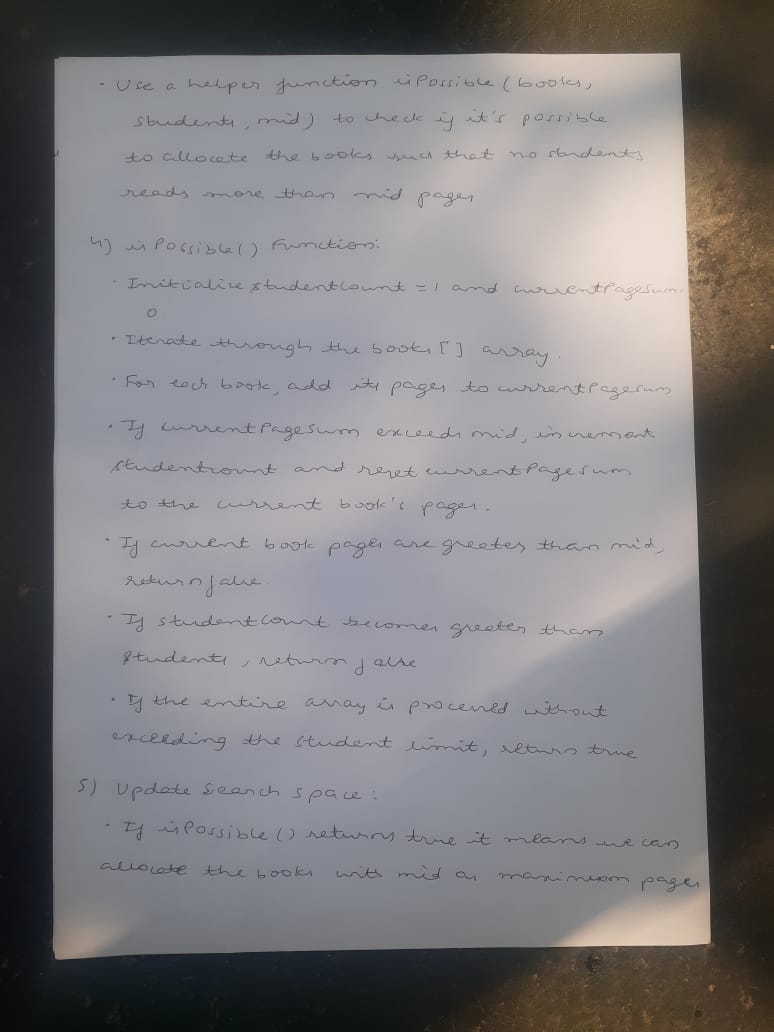 • Use a helper function isPossible (books,
students, mid) to check if it's possible
to allocate the books such that no students
reads more than mid pages
4) isPossible() Function:
• Initialize studentCount = 1 and currentPageSum =
0
• Iterate through the books [ ] array.
• For each book, add its pages to currentPagesum
• If currentPageSum exceeds mid, increment
studentcount and reset currentPageSum
to the current book's pages.
• If current book pages are greater than mid,
return false.
• If studentCount becomes greater than
students, return false
• If the entire array is processed without
exceeding the student limit, return true
5) Update Search space:
• If isPossible () returns true it means we can
allocate the books with mid as maximum pages